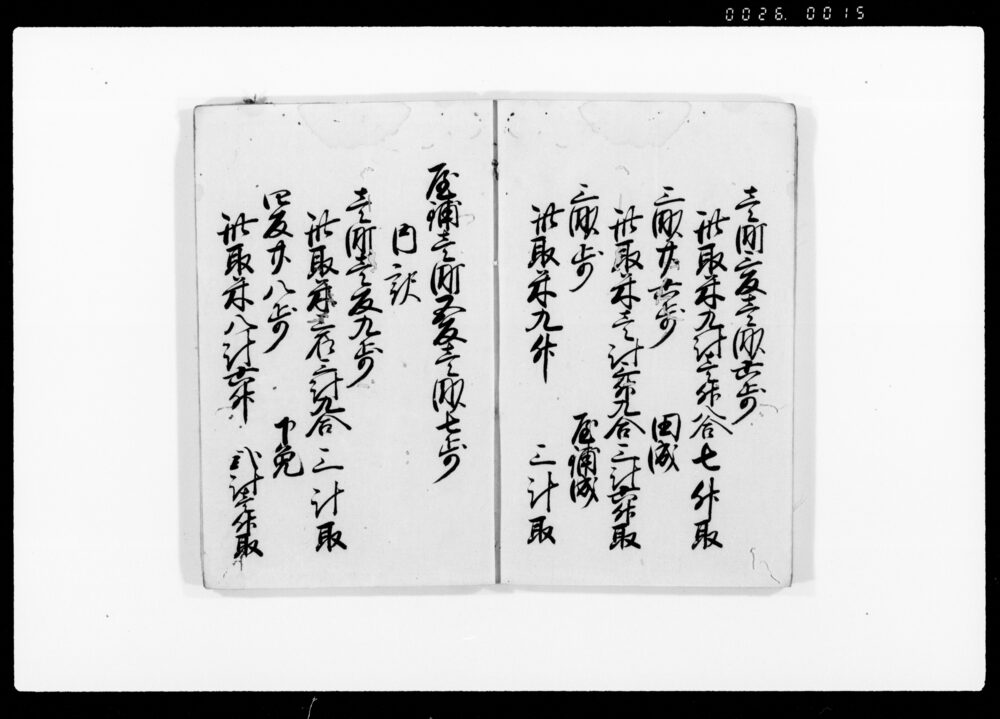 0026.0015
壱町六反壱畝廿六歩
此取米九斗壱升八合 七升取
三畝廿六歩 田成
此取米壱斗六升九合 三斗四升取
三畝歩 屋鋪成
此取米九升 三斗取
屋鋪壱町五反壱畝七歩
内訳
壱町壱反九歩
此取米三石三斗九合 三斗取
四反廿八歩 下免
此取米八斗四升 弐斗壱升取